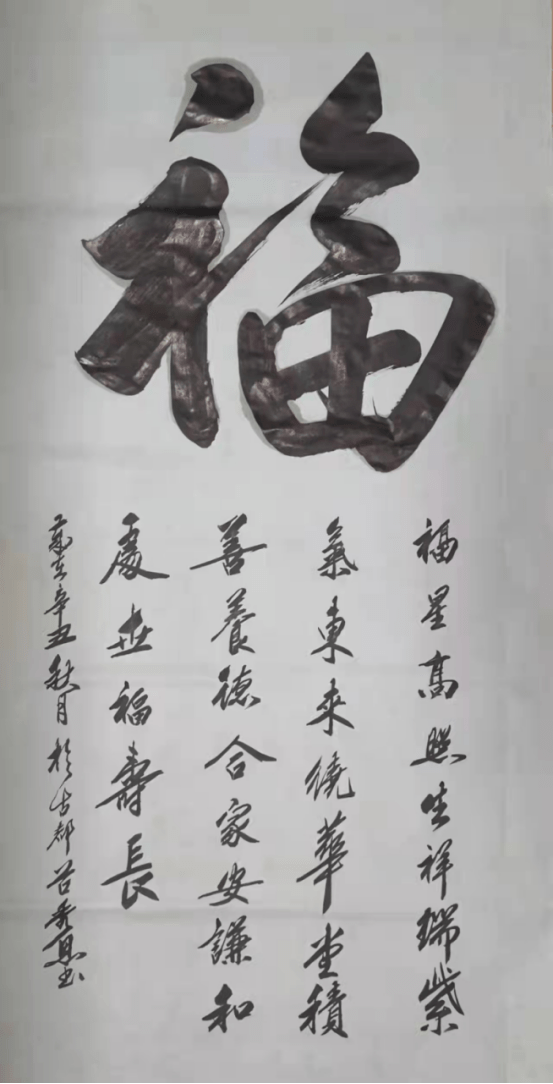 福
福星高照生祥瑞紫
氣東來繞華堂積
善養德合家安謙和
處世福壽長
歲在辛丑秋月於古都